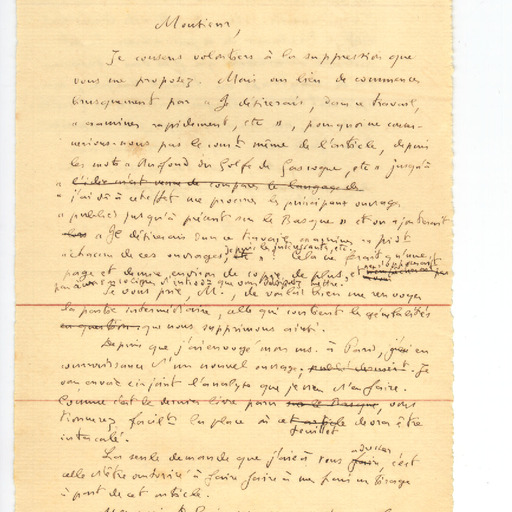 Monsieur,
Je consens volontiers à la suppression que
vous me proposez. Mais au lieu de commencer
brusquement par « Je désirerais, dans ce travail,
« examiner rapidement, etc », pourquoi ne commen-
cerions-nous pas le conte même de l'article, depuis
les mots « Au fond du Golfe de Gascogne, etc » jusqu'à
« l'idée m'est venue de comparer le langage de
« j'ai dû à cet effet me procurer les principaux ouvrages
« publiés jusqu'à présent sur le Basque » et on ajouterait
« Je désirerais dans ce travail examiner
« chacun de ces ouvrages, etc » ? Cela ne ferait qu'une
page et demie environ de copie de plus, et
que vous
Je vous prie, M., de vouloir bien me renvoyer
la partie intermédiaire, celle qui contient les généralités
en question que nous supprimons ainsi.
Depuis que j'ai envoyé mon ms. à Paris, j'ai eu
connaissance d'un nouvel ouvrage, publié dessus. Je
vous envoie ci-joint l'analyse que je viens d'en faire.
Comme c'est le dernier livre paru sur le Basque, vous
trouverez facilt la place où cet article devra être
feuillet
intercalé.
La seule demande que j'aie à vous faire, c'est
adresser
celle d'être autorisé à faire faire à mes frais un tirage
à part de cet article.